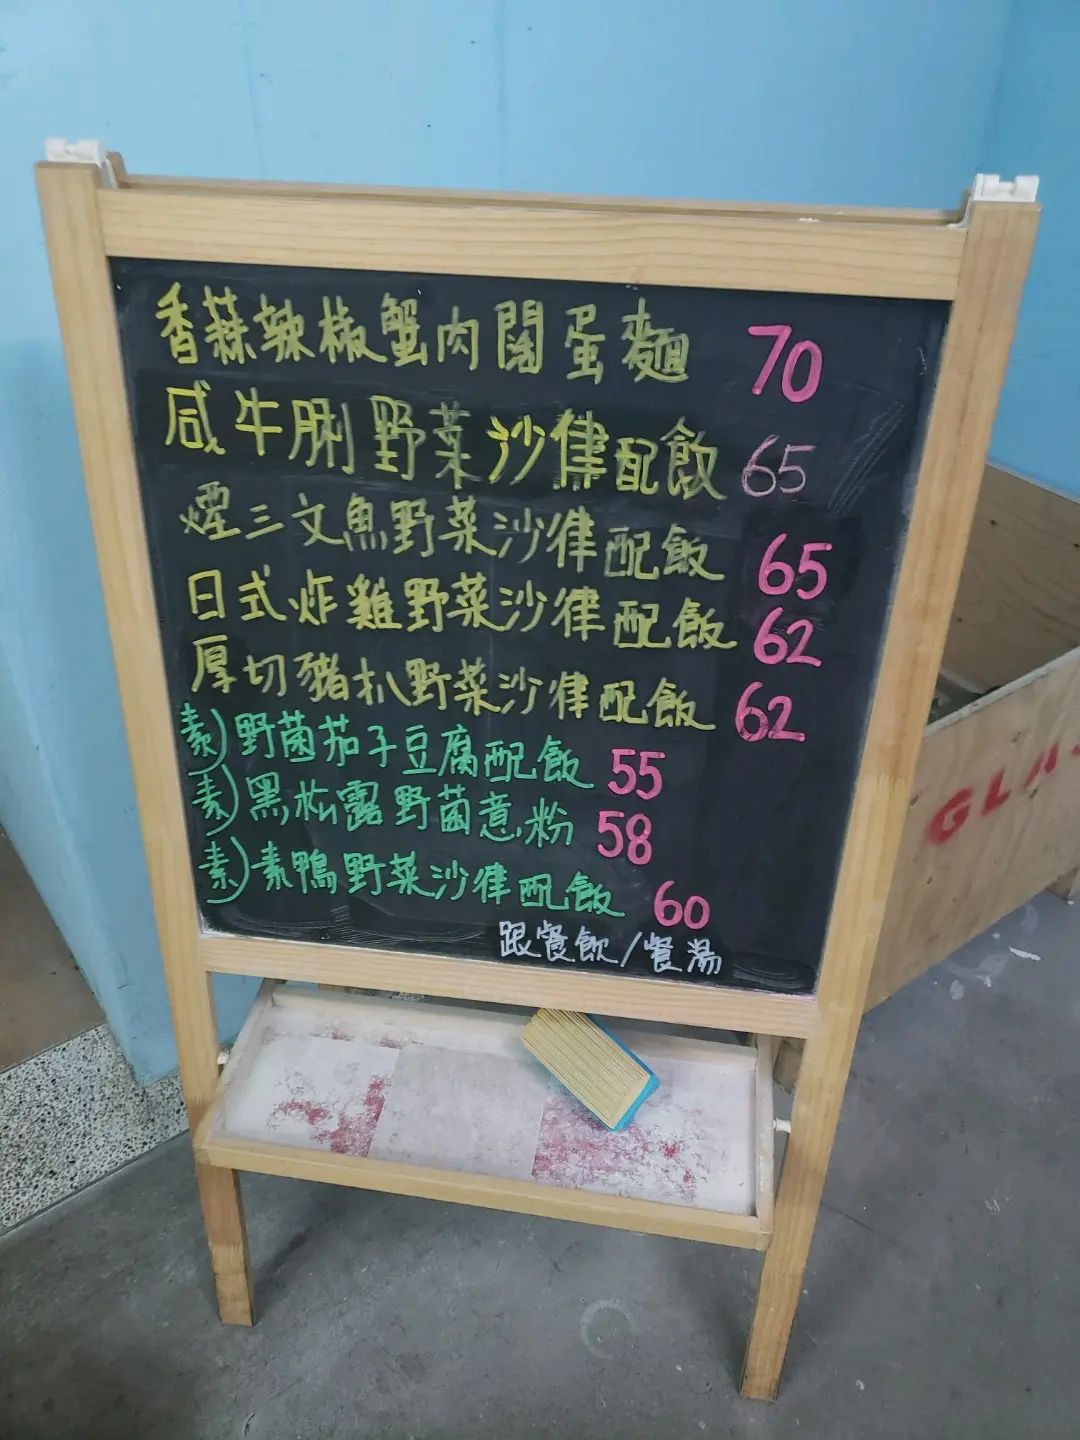 香蒜辣椒蟹肉闊蛋麵 70
咸牛脷野菜沙律配飯 65
煙三文魚野菜沙律配飯 65
日式炸雞野菜沙律配飯 62
厚切豬扒野菜沙律配飯 62
素)野菌茄子豆腐配飯 55
素)黑松露野菌意粉 58
素)素鴨野菜沙律配飯 60
跟餐飲/餐湯